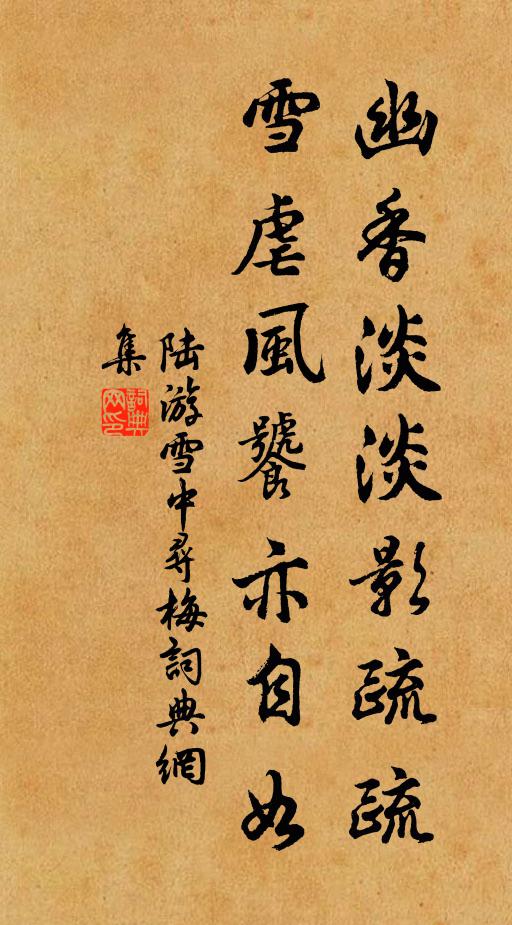 幽香淡淡影疏疏
雪虐風饕亦自如
陸游雪中尋梅詞典網
集
詞典網印